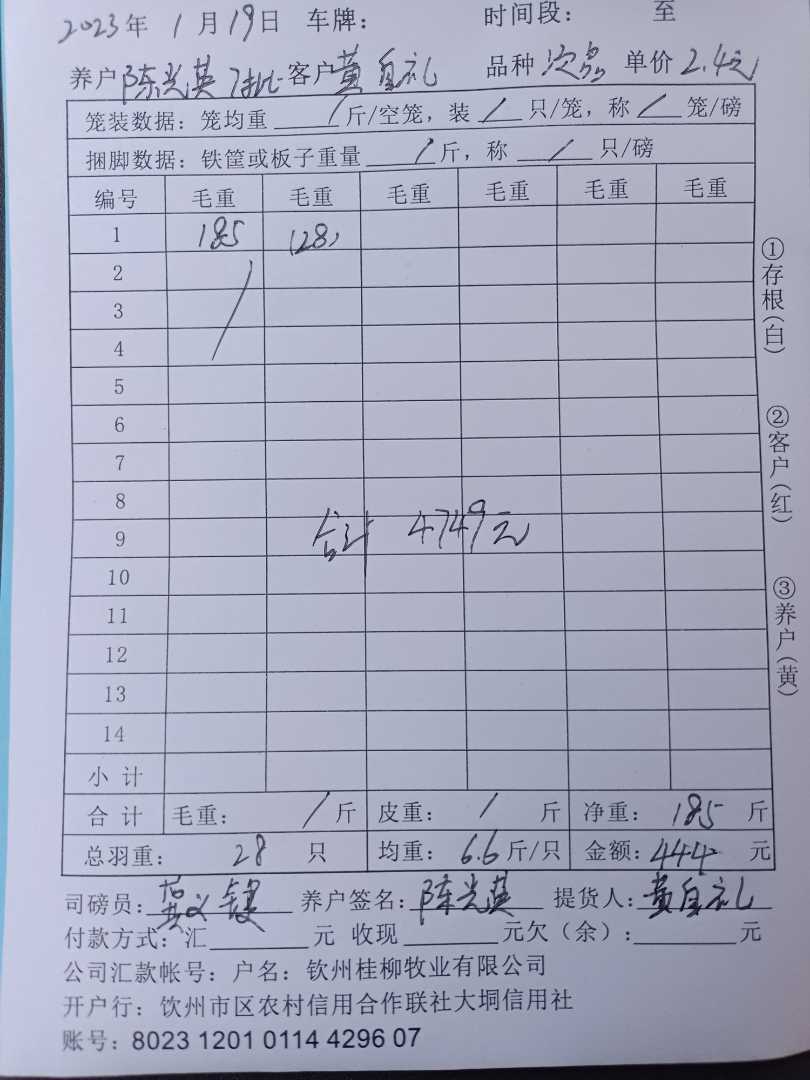 2023年 1月19日 车牌： 时间段： 至
养户 陈光英 7批 客户 黄自礼 品种 次品 单价 2.4元
笼装数据：笼均重 / 斤/空笼，装 / 只/笼，称 / 笼/磅
捆脚数据：铁筐或板子重量 / 斤，称 / 只/磅
编号 毛重 毛重 毛重 毛重 毛重 毛重
1 185 (28)
2
3
4
5
6
7
8
9 合计 4749元
10
11
12
13
14
小计
合计 毛重： / 斤 皮重： / 斤 净重： 185 斤
总羽重： 28 只 均重： 6.6 斤/只 金额： 444 元
司磅员： 养户签名： 陈光英 提货人： 黄自礼
付款方式：汇 元 收现 元欠（余）： 元
公司汇款帐号：户名：钦州桂柳牧业有限公司
开户行：钦州市区农村信用合作联社大垌信用社
账号：8023 1201 0114 4296 07
①存根(白)
②客户(红)
③养户(黄)